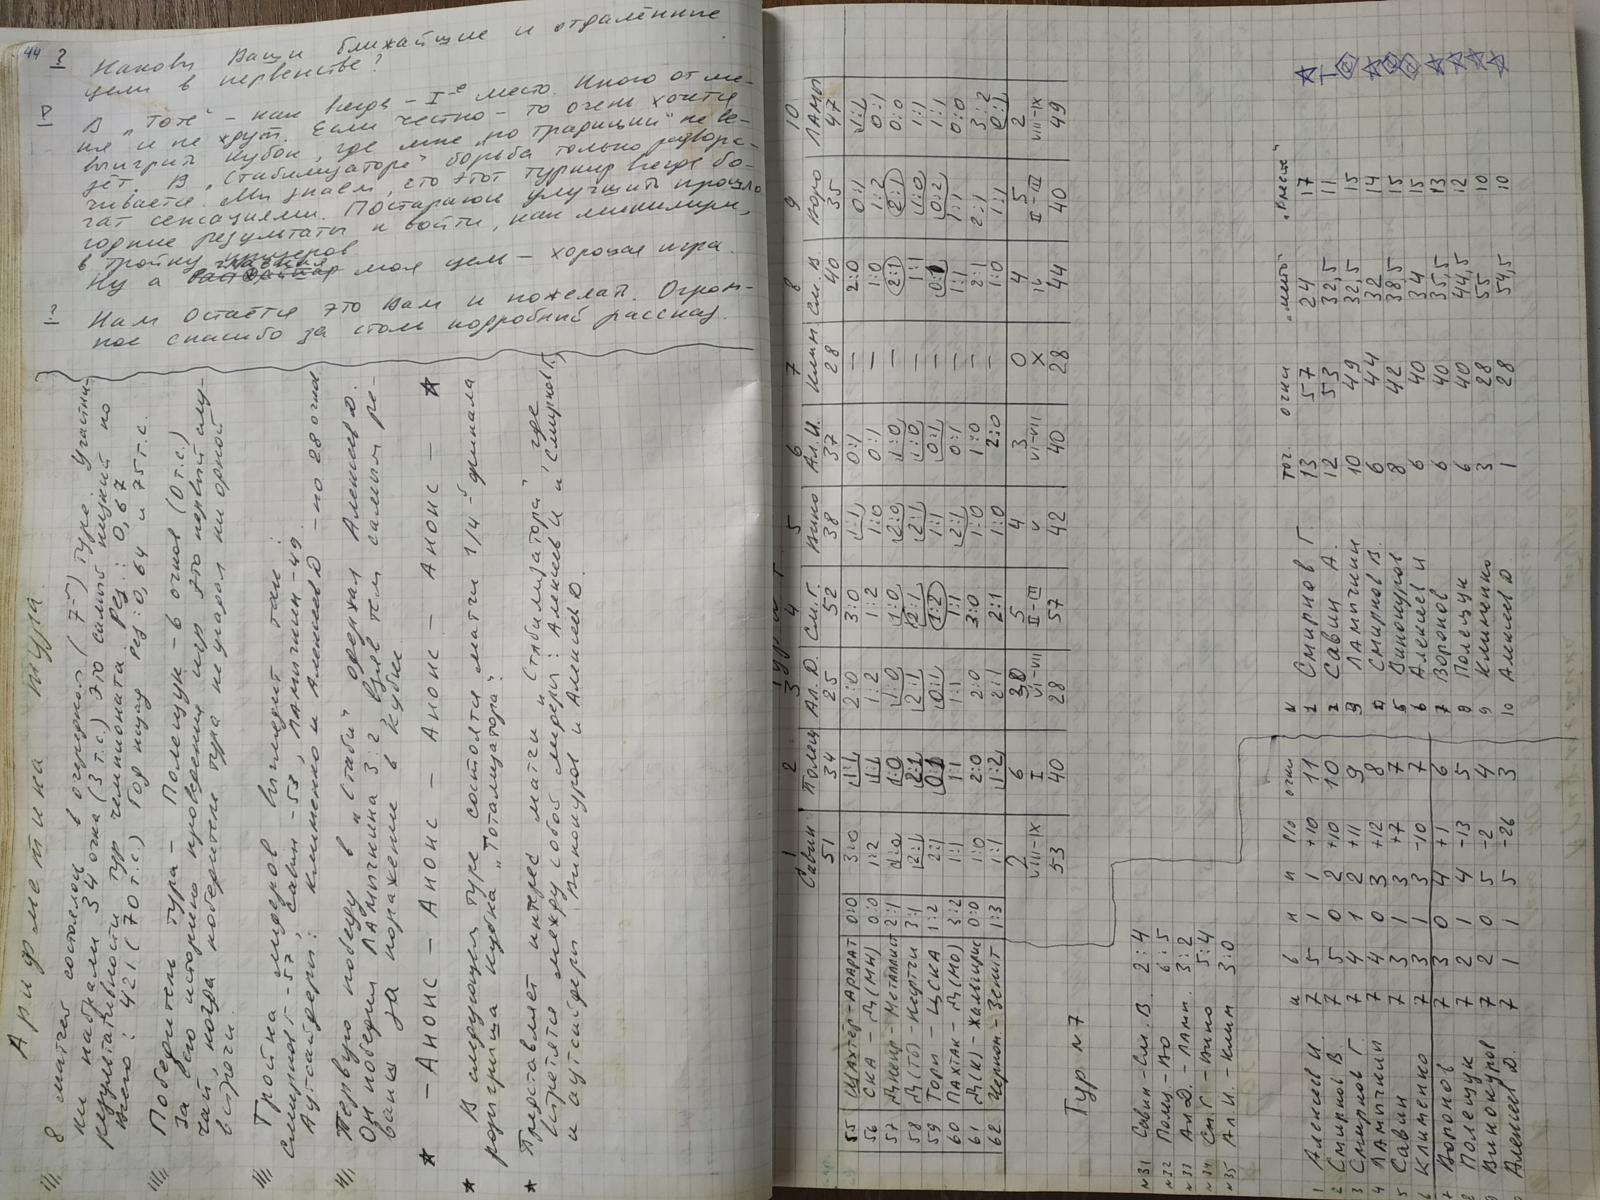 44
? Каковы Ваши ближайшие и отдалённые
цели в первенстве?
В „Тоте" – как всегда – I-е место. Иного от ме-
ня и не ждут. Если честно – то очень хочется
выиграть Кубок, где мне „по традиции" не ве-
зёт. В „Стабилизаторе" борьба только развора-
чивается. Мы знаем, что этот турнир всегда бо-
гат сенсациями. Постараюсь улучшить прошло-
годние результаты и войти, как минимум,
в тройку призёров
Ну а главная моя цель – хорошая игра.
? Нам остаётся это Вам и пожелать. Огром-
ное спасибо за столь подробный рассказ.
Арифметика тура
8 матчей состоялось в очередном (7-м) туре. Участни-
ки набрали 34 очка (3 т.с.) Это самый низкий по
результативности тур чемпионата рез.: 0,67
Всего: 421 (70 т.с.) Год назад рез: 0,64 и 75 т.с.
Победитель тура – Полещук – 6 очков (0 т.с.)
За всю историю проведения игр это первый слу-
чай, когда победитель тура не угадал ни одной
встречи.
Тройка лидеров выглядит так:
Смирнов Г – 57, Савин – 53, Лампичкин – 49.
Аутсайдеры: Клименко и Алексеев Д – по 28 очков
Первую победу в „Стаби" одержал Алексеев Д.
Он победил Лампичкина 3:2, взяв тем самым ре-
ванш за поражение в Кубке
★ – Анонс – Анонс – Анонс – Анонс – Анонс – ★
★ В следующем туре состоятся матчи 1/4-й финала
розыгрыша кубка „Тотализатора".
★ Представляет интерес матчи „Стабилизатора", где
встретятся между собой лидеры: Алексеев И и Смирнов В,
и аутсайдеры: Винокуров и Алексеев Д.
1 2 3 4 5 6 7 8 9 10
Савин Полещ Ал.Д. См.Г. Вино Ал.И. Клим См.В Воро Ламп
51 34 25 52 38 37 28 40 35 47
55 Шахтёр – Арарат 0:0 3:0 1:1 2:0 3:0 1:1 0:1 – 2:0 0:1 1:1
56 СКА – Д(Мн) 0:0 1:2 1:1 1:2 1:2 1:0 0:1 – 1:0 1:2 0:1
57 Днепр – Металлист 2:1 1:0 1:0 1:0 1:0 2:0 1:0 – 2:1 2:1 0:0
58 Д(Тб) – Нефтчи 3:1 2:1 2:1 2:1 2:1 2:1 1:0 – 1:1 1:0 1:1
59 Торп – ЦСКА 1:2 2:1 0:1 0:1 1:2 1:1 0:1 – 0:1 0:2 1:1
60 Пахтак – Д(Мо) 3:2 1:1 1:1 1:1 1:1 2:1 0:1 – 1:1 1:1 0:0
61 Д(К) – Жальгирис 0:0 1:0 2:0 2:0 3:0 1:0 1:0 – 2:1 2:1 3:2
62 Черном – Зенит 1:3 1:1 1:2 2:1 2:1 1:0 2:0 – 1:0 1:1 0:1
2 6 3 5 4 3 0 4 5 2
VIII-IX I VI-VII II-III V VI-VII X IV II-III VIII-IX
53 40 28 57 42 40 28 44 40 49
Тур №7
№31 Савин – См.В 2:4
№32 Полещ – Во 6:5
№33 Ал.Д. – Ламп. 3:2
№34 См.Г – Вино 5:4
№35 Ал.И. – Клим 3:0
и в н п р/о очки
1 Алексеев И 7 5 1 1 +10 11
2 Смирнов В 7 5 0 2 +10 10
3 Смирнов Г 7 4 1 2 +11 9
4 Лампичкин 7 4 0 3 +12 8
5 Савин 7 3 1 3 +7 7
6 Клименко 7 3 1 3 -10 7
7 Воронов 7 3 0 4 +1 6
8 Полещук 7 2 1 4 -13 5
9 Винокуров 7 2 0 5 -2 4
Алексеев Д. 7 1 1 5 -26 3
тог. очки „место" „вместе"
1 Смирнов Г 13 57 24 17
2 Савин А. 12 53 32,5 11
3 Лампичкин 10 49 32,5 15
4 Смирнов В. 6 44 32 14
5 Винокуров 8 42 38,5 15
6 Алексеев И 6 40 34 15
7 Воронов 6 40 35,5 13
8 Полещук 6 40 44,5 12
9 Клименко 3 28 55 10
10 Алексеев Д 1 28 54,5 10